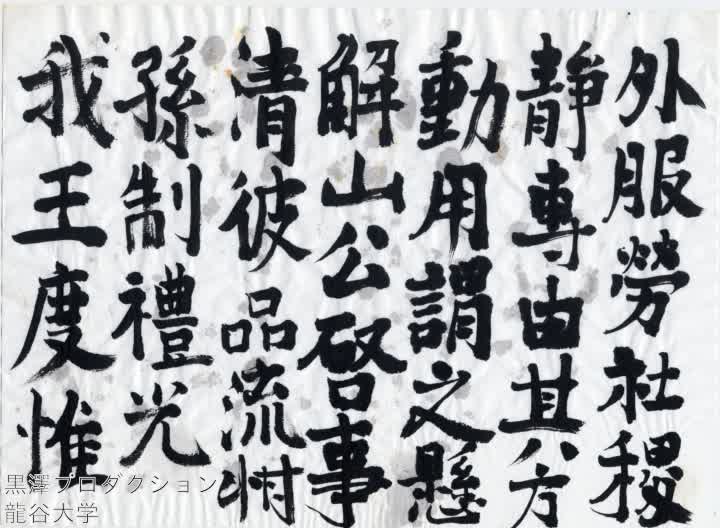 外服勞社稷
靜專由其方
動用謂之懸
解山公啓事
清彼品流叔
孫制禮光
我王度惟
黒澤プロダクション
龍谷大学